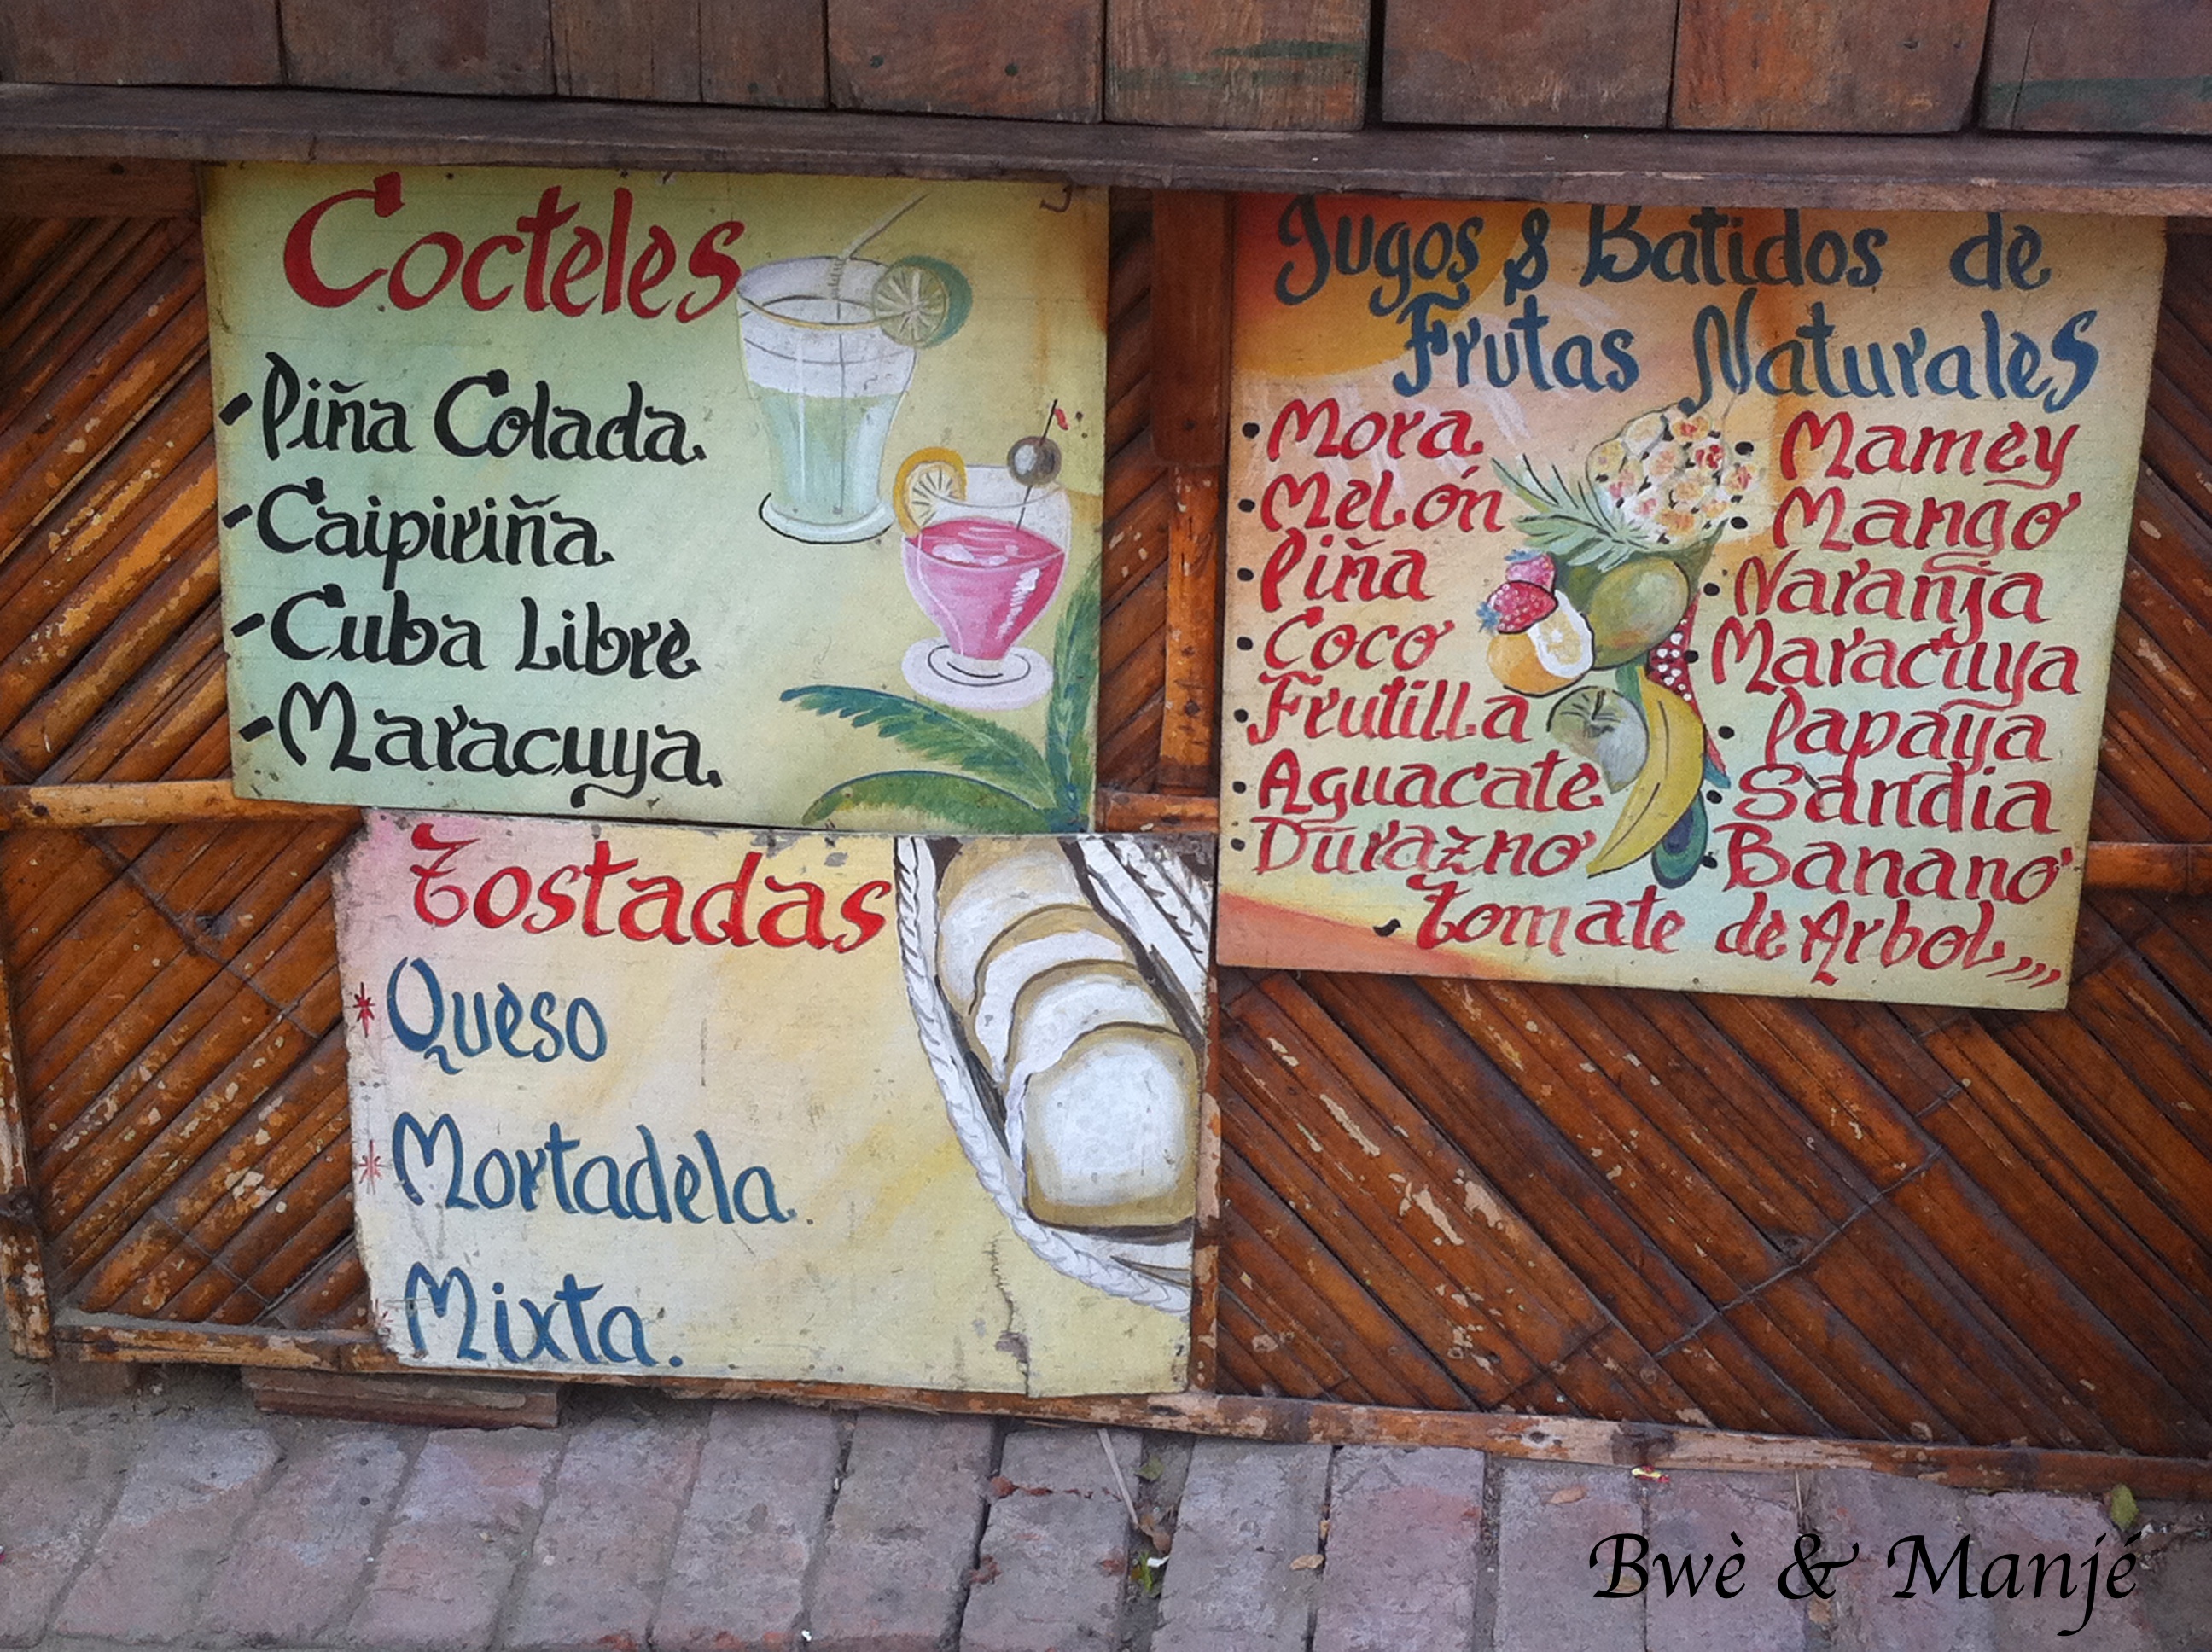 Cocteles
-Piña Colada.
-Caipiriña.
-Cuba Libre
-Maracuya.
Tostadas
* Queso
* Mortadela.
* Mixta.
Jugos & Batidos de
Frutas Naturales
• Mora
• Melón
• Piña
• Coco
• Frutilla
• Aguacate
• Durazno
• Mamey
• Mango
• Naranja
• Maracuya
• Papaya
• Sandia
• Banano
• Tomate de Arbol,,,
Bwè & Manjé